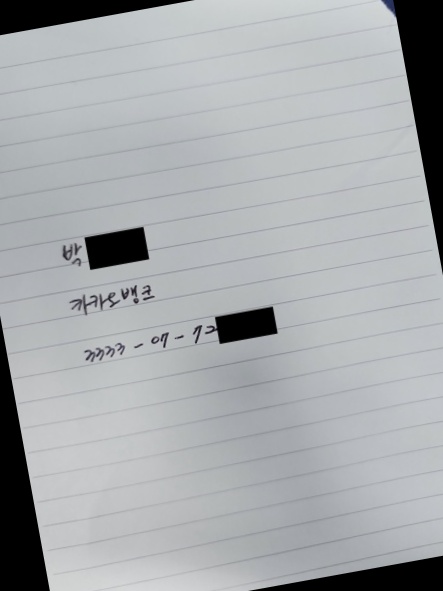 박
카카오뱅크
3333 - 07 - 72